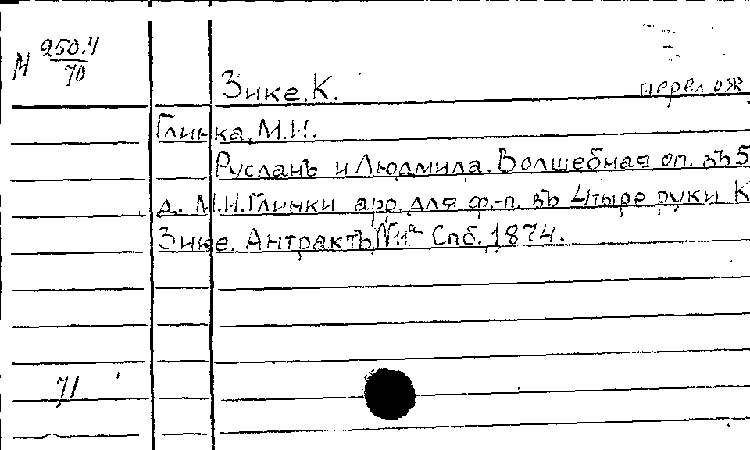 М 250.4
70
Зике, К.
перелож
Глинка, М.И.
Русланъ и Людмила. Волшебная оп. въ 5
д. М.И. Глинки аро. для ф.-п. въ 4тыре руки К
Зике. Антрактъ №1й Спб. 1874.
71